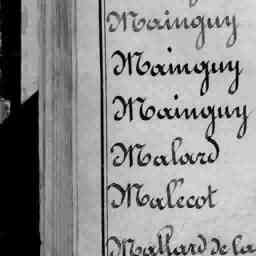 Mainguy
Mainguy
Mainguy
Malard
Malécot
Mallard de la